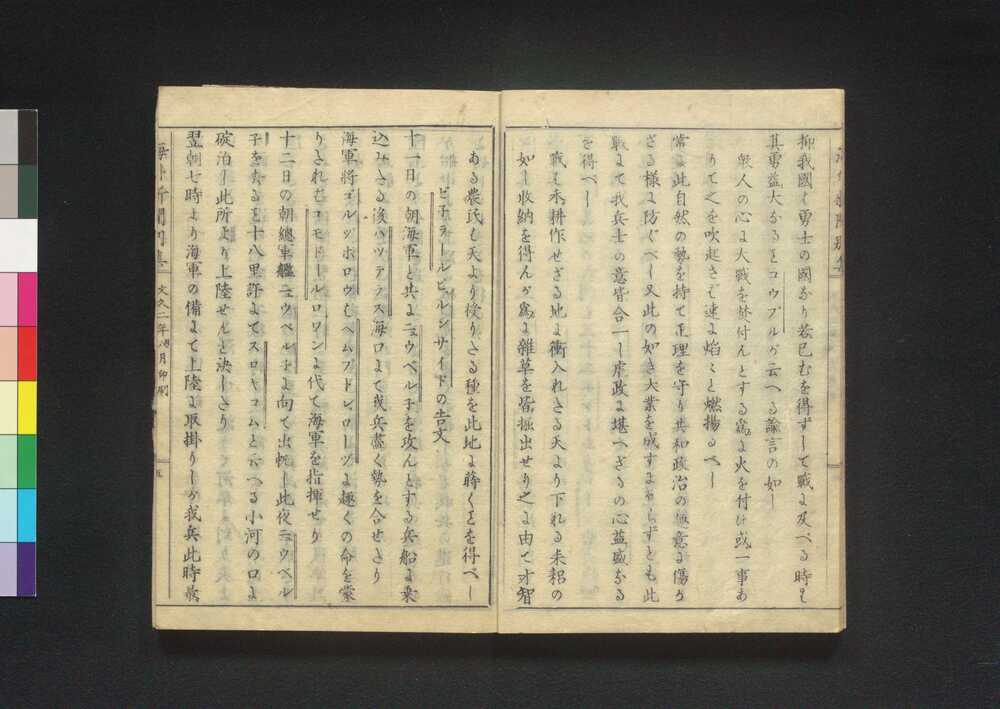 抑我國ハ勇士の國なり若已むを得ずして戰に及べる時は
其勇益大なること コウブルが云へる諭言の如し
敵人の心に大戰を焚付んとする爲に火を付け或一事あ
りて之を吹起さば速に焰々と燃揚るべし
常に此自然の勢を持て正理を守り共和政治の無意に傷か
ざる様に防ぐべし又此の如き大業を成すにあらずとも此
戰にて我兵士の意皆合一し虐政に堪へざるの心益盛なる
を得べし
戰も永耕作せざる地に衝入れたる天より下れる耒耜の
如し收納を得んが爲に雜草を皆掘出せり之に由て才智
ある農民も天より授りたる種を此地に蒔くことを得べし
ビ子ラールビルンサイドの告文
十一日の朝海軍と共にニユウベル子を攻んとする兵船に乗
込みたる後ハツテラス海口にて我兵盡く勢を合せたり
海軍將ゴルツボロウもヘムプトレローヅに趣くの命を蒙
りたればコモドールロワンに代て海軍を指揮せり
十二日の朝總軍艦ニウベル子に向て出帆し此夜ニウベル
子を去ること十八里許にてスロキコムと云へる小河の口に
碇泊し此所より上陸せんと決したり
翌朝七時より海軍の備にて上陸に取掛りしが我兵此時最
海外新聞別集
文久二年 月印刷
五